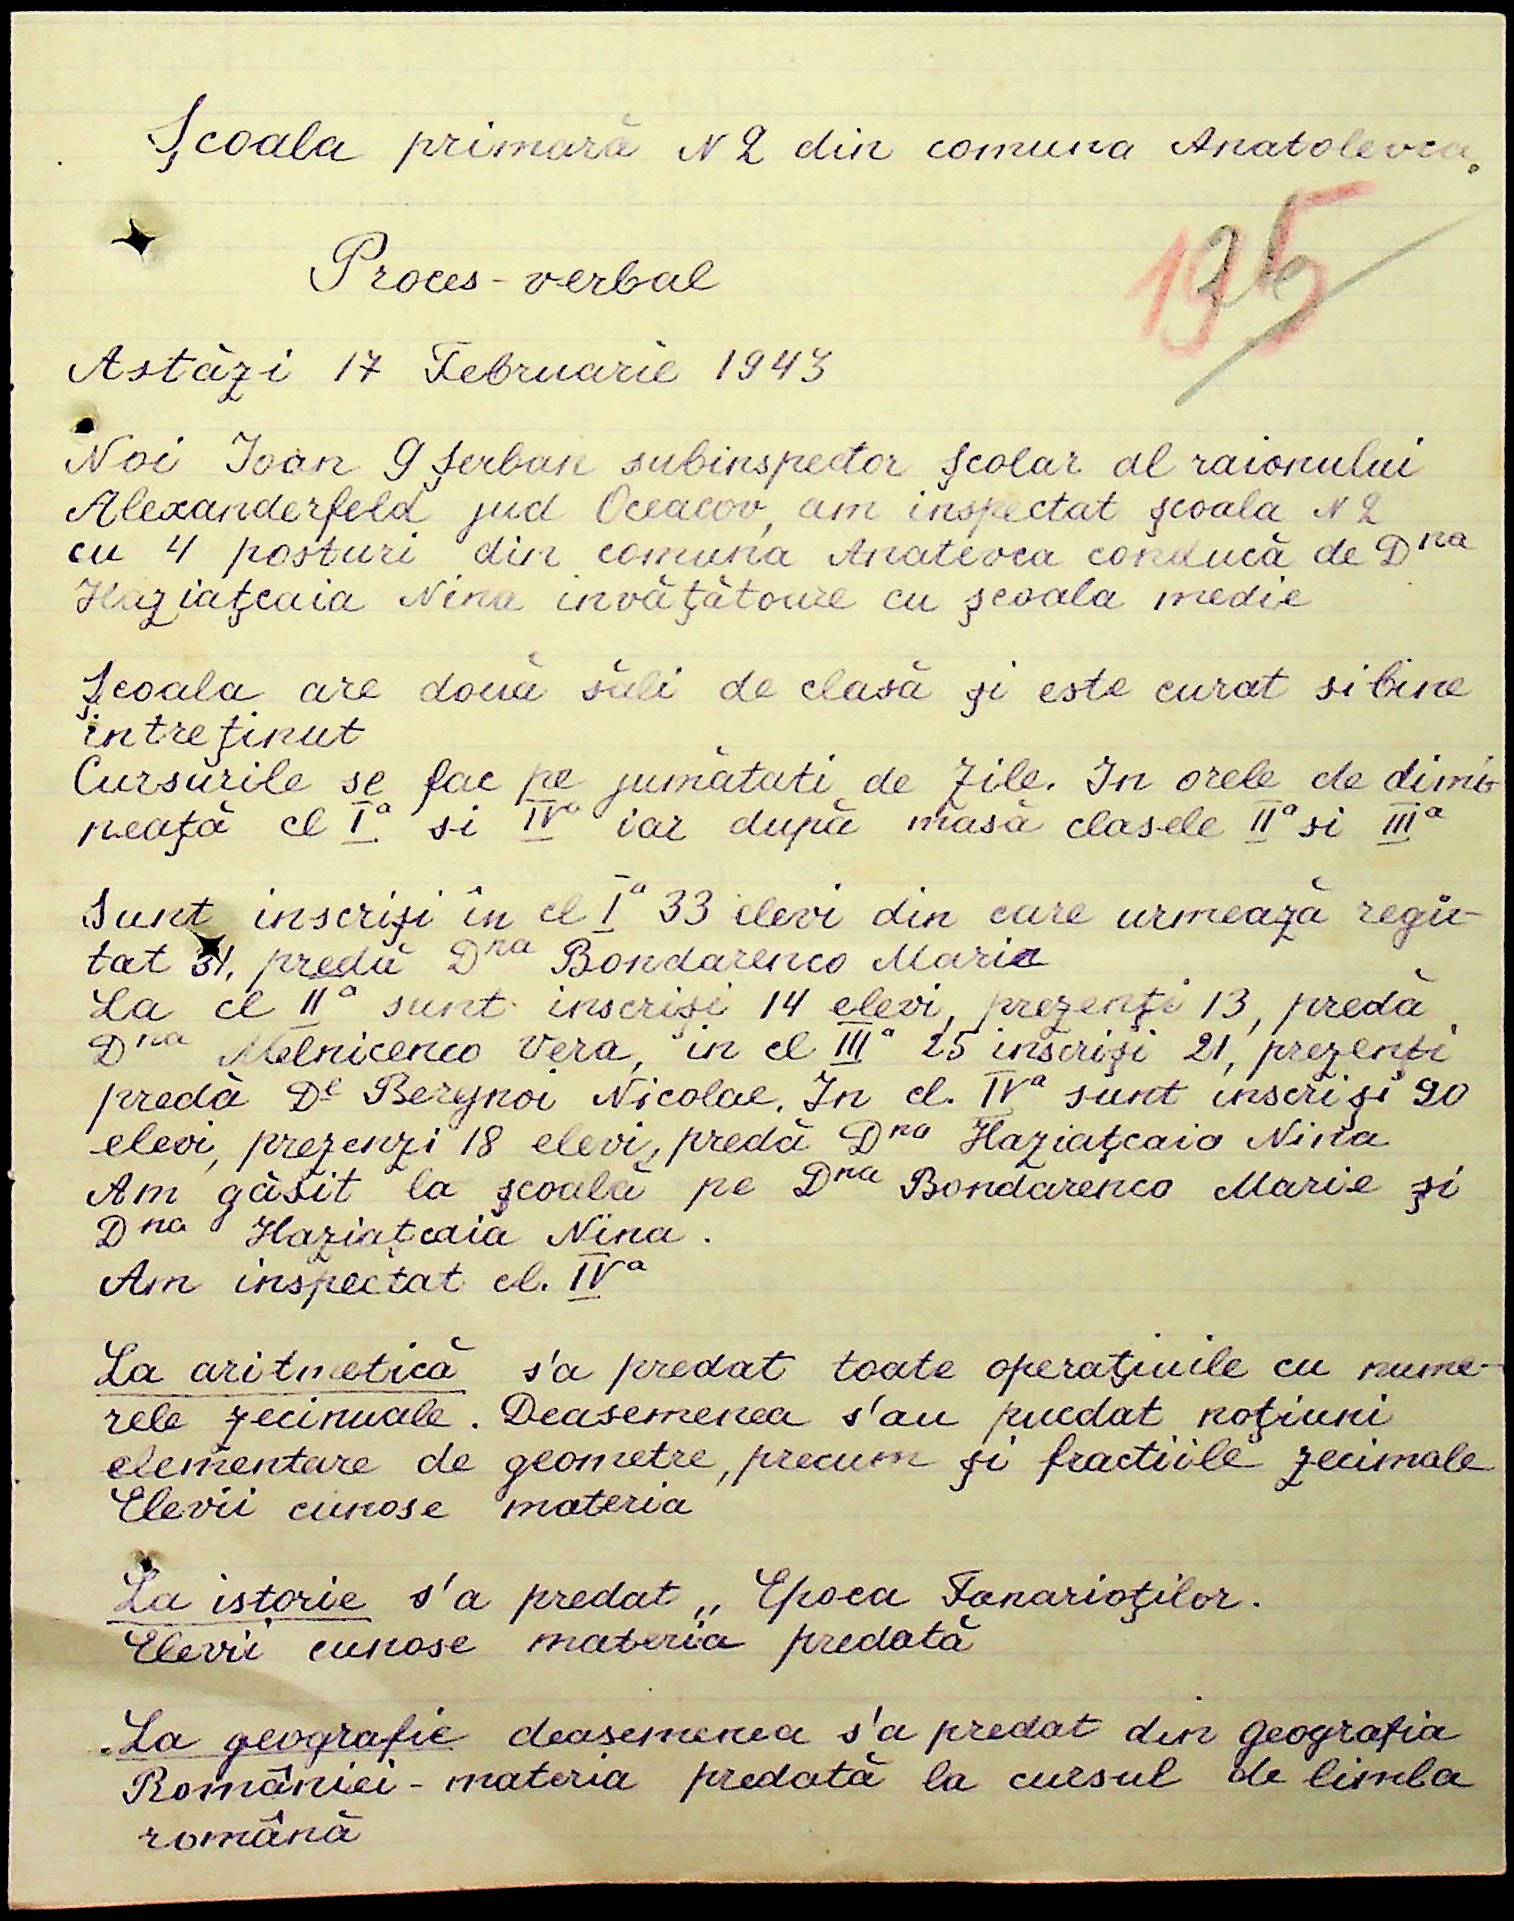 Școala primară N 2 din comuna Anatolevca.
195
26
Proces-verbal
Astăzi 17 Februarie 1943
Noi Ioan G Șerban subinspector școlar al raionului
Alexanderfeld jud Oceacov, am inspectat școala N 2
cu 4 posturi din comuna Anatevca conducă de Dna
Haziațcaia Nina invățătoare cu școala medie
Școala are două săli de clasă și este curat si bine
intreținut
Cursurile se fac pe jumătati de zile. In orele de dimi-
neață cl Iª si IVª iar după masă clasele IIª si IIIª
Sunt inscriși în cl Iª 33 elevi din care urmează regu-
tat 31, predă Dna Bondarenco Maria
La cl IIª sunt inscriși 14 elevi, prezenți 13, predă
Dna Melnicenco Vera, in cl IIIª 25 inscriși 21, prezenți
predă Dl Bergnoi Nicolae. In cl. IVª sunt inscriși 20
elevi, prezenzi 18 elevi, predă Dna Haziațcaia Nina
Am găsit la școală pe Dna Bondarenco Marie și
Dna Haziațcaia Nina.
Am inspectat cl. IVª
La aritmetică s'a predat toate operațiuile cu nume-
rele zecinuale. Deasemenea s'au pucdat noțiuni
elementare de geometre, precum și fractiile zecimale
Elevii cunosc materia
La istorie s'a predat „ Epoca Fanarioților.
Elevii cunosc materia predată
La geografie deasemenea s'a predat din geografia
României - materia predată la cursul de limba
română